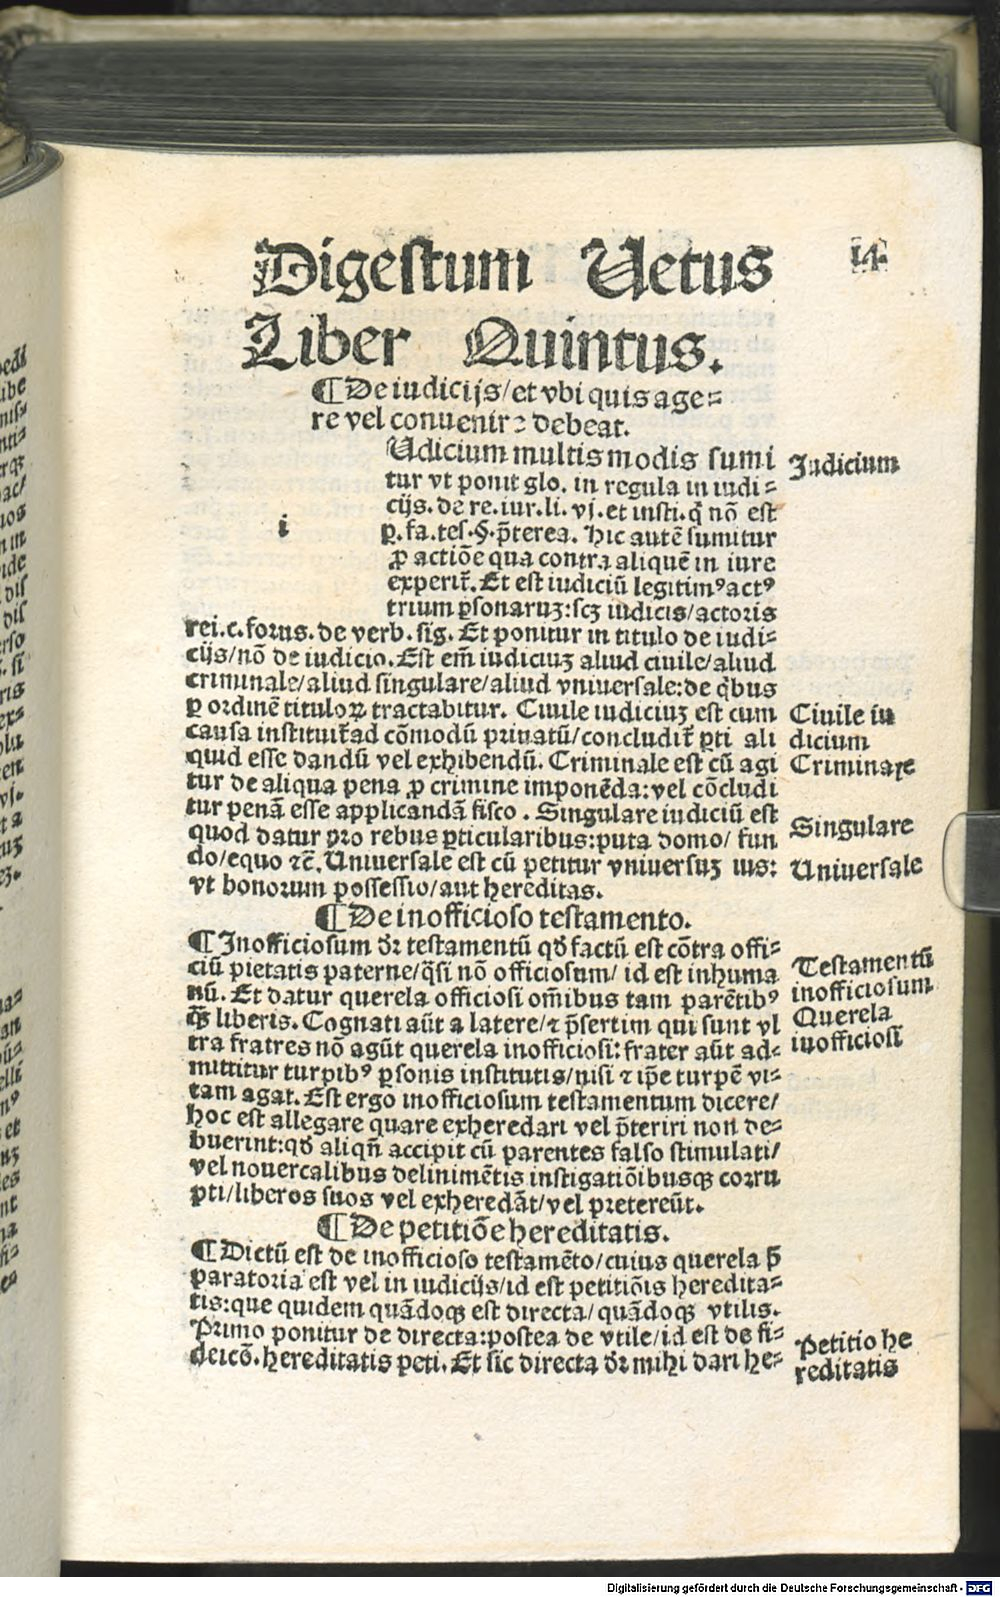 Digestum Uetus
14.
Liber Quintus.
¶ De iudicijs/et vbi quis age⸗
re vel conuenir ꝛ debeat.
i
Udicium multis modis sumi
Iudicium
tur vt ponit glo. in regula in iudi⸗
cijs. de re. iur. li. vj. et insti. q̄ nō est
ꝑ. fa. tes. §. p̄terea. hic autē sumitur
ꝓ actiōe qua contra aliquē in iure
experit̄. Et est iudiciū legitimꝰ actꝰ
trium ꝑsonaruꝫ: scꝫ iudicis/actoris
rei. c. forus. de verb. sig. Et ponitur in titulo de iudi⸗
cijs/nō de iudicio. Est em̄ iudiciuꝫ aliud ciuile/aliud
criminale/aliud singulare/aliud vniuersale: de q̄bus
ꝑ ordinē tituloꝝ tractabitur. Ciuile iudiciuꝫ est cum
Ciuile iu
causa instituit̄ ad cōmodū priuatū/concludit̄ ꝑti ali
dicium
quid esse dandū vel exhibendū. Criminale est cū agi
Criminale
tur de aliqua pena ꝓ crimine imponēda: vel cōcludi
tur penā esse applicandā fisco. Singulare iudiciū est
Singulare
quod datur pro rebus ꝑticularibus: puta domo/ fun
do/equo ⁊c̄. Uniuersale est cū petitur vniuersuꝫ ius:
Uniuersale
vt bonorum possessio/aut hereditas.
¶ De inofficioso testamento.
¶ Inofficiosum dr̄ testamentū qd̄ factū est cōtra offi⸗
Testamentū
ciū pietatis paterne/q̄si nō officiosum/ id est inhuma
inofficiosum
nū. Et datur querela officiosi om̄ibus tam parētibꝰ
Querela
q̄ꝫ liberis. Cognati aūt a latere/⁊ p̄sertim qui sunt vl
inofficiosi
tra fratres nō agūt querela inofficiosi: frater aūt ad⸗
mittitur turpibꝰ ꝑsonis institutis/nisi ⁊ ip̄e turpē vi⸗
tam agat. Est ergo inofficiosum testamentum dicere/
hoc est allegare quare exheredari vel p̄teriri non de⸗
buerint: qd̄ aliqn̄ accipit cū parentes falso stimulati/
vel nouercalibus delinimētis instigatiōibusqꝫ corru
pti/liberos suos vel exheredāt/vel pretereūt.
¶ De petitiōe hereditatis.
¶ Dictū est de inofficioso testamēto/cuius querela p̄
paratoria est vel in iudicijs/id est petitiōis heredita⸗
tis: que quidem quādoqꝫ est directa/quādoqꝫ vtilis.
Primo ponitur de directa: postea de vtile/id est de fi⸗
Petitio he
deicō. hereditatis peti. Et sic directa dr̄ mihi dari he⸗
reditatis
Digitalisierung gefördert durch die Deutsche Forschungsgemeinschaft - DFG